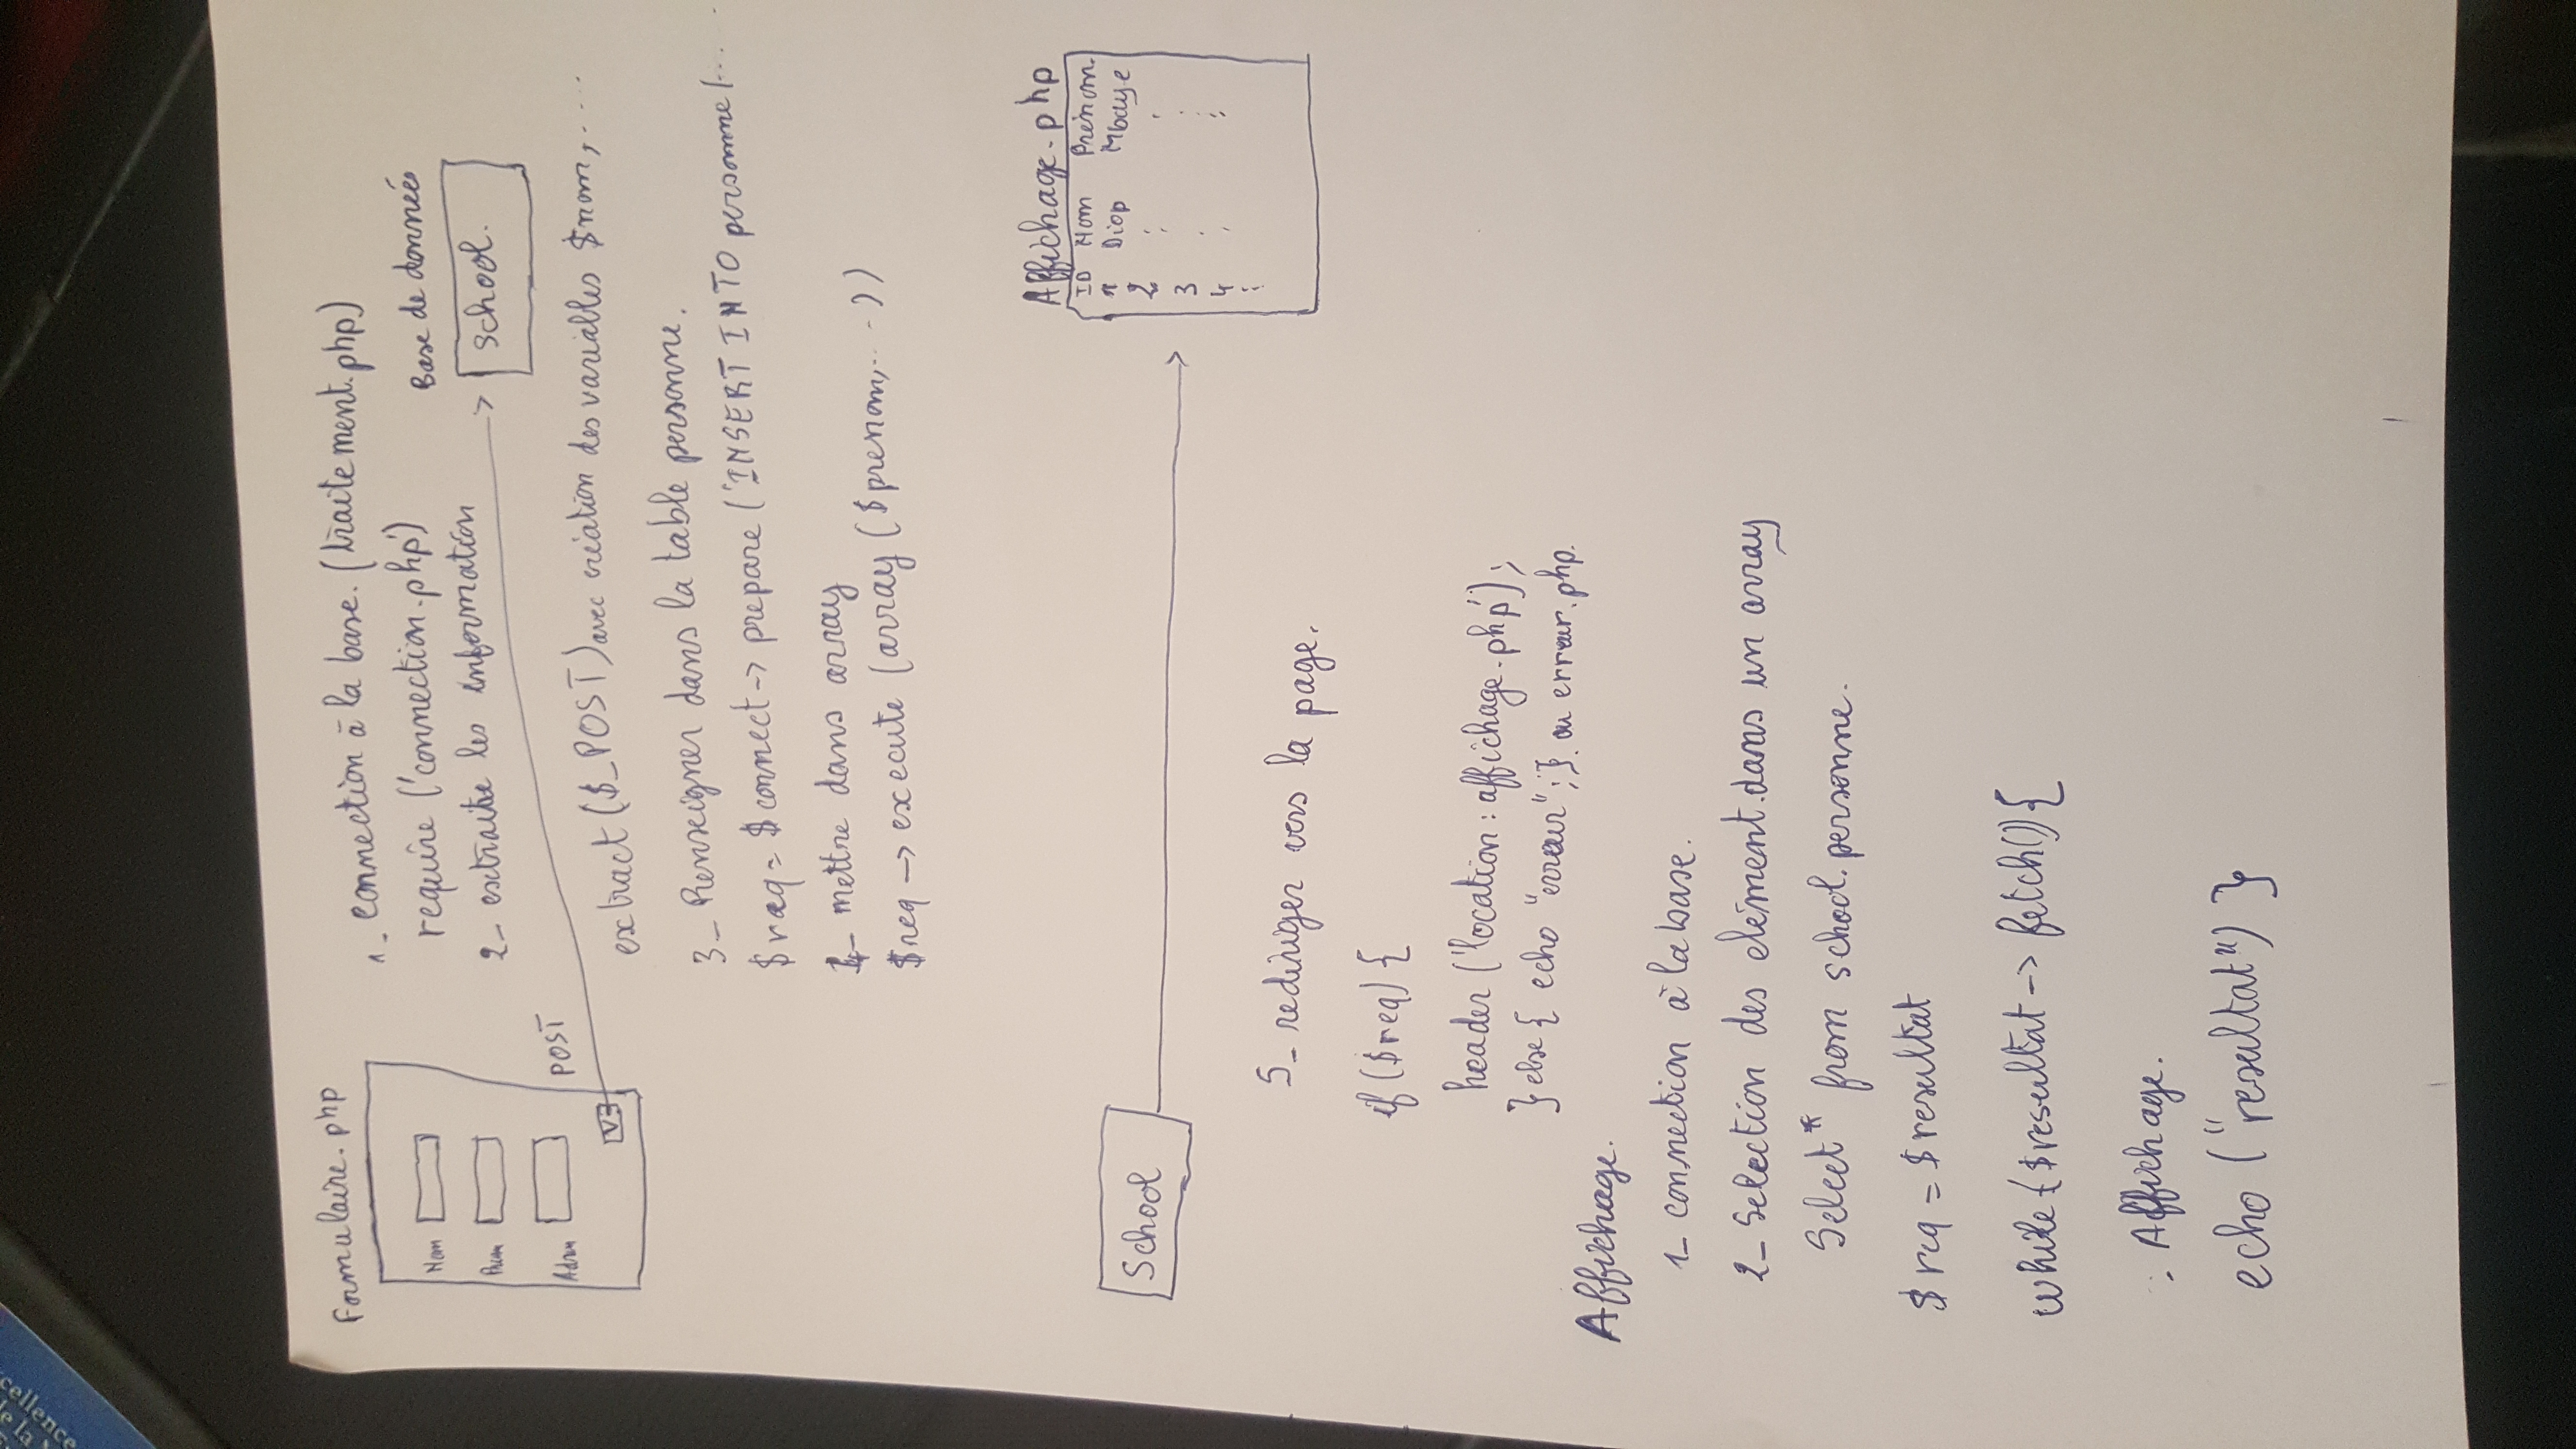 cellence
de la
Formulaire.php
Nom
Prenom
Adress
V3
POST
1_ connection à la base. (traitement.php)
require ('connection.php')
2_ extraitre les information
Base de donnéés
School.
extract ($_POST) avec création des variables $nom, ....
3_ Renseigner dans la table personne.
$req = $connect -> prepare ('INSERT INTO personne (...
4_ mettre dans array
$req -> execute (array ($prenom, ... ))
School
Affichage.php
ID Nom Prénom.
1 Diop Mbaye
2
3
4
5_ rediriger vers la page.
if ($req) {
header ('location : affichage.php');
} else { echo "erreur" ; } ou erreur.php.
Affichage.
1_ connection à la base.
2_ Selection des elément.dans un array
Select * from school.personne.
$req = $resultat
while ($resultat -> fetch()) {
: Affichage.
echo ("resultat") }